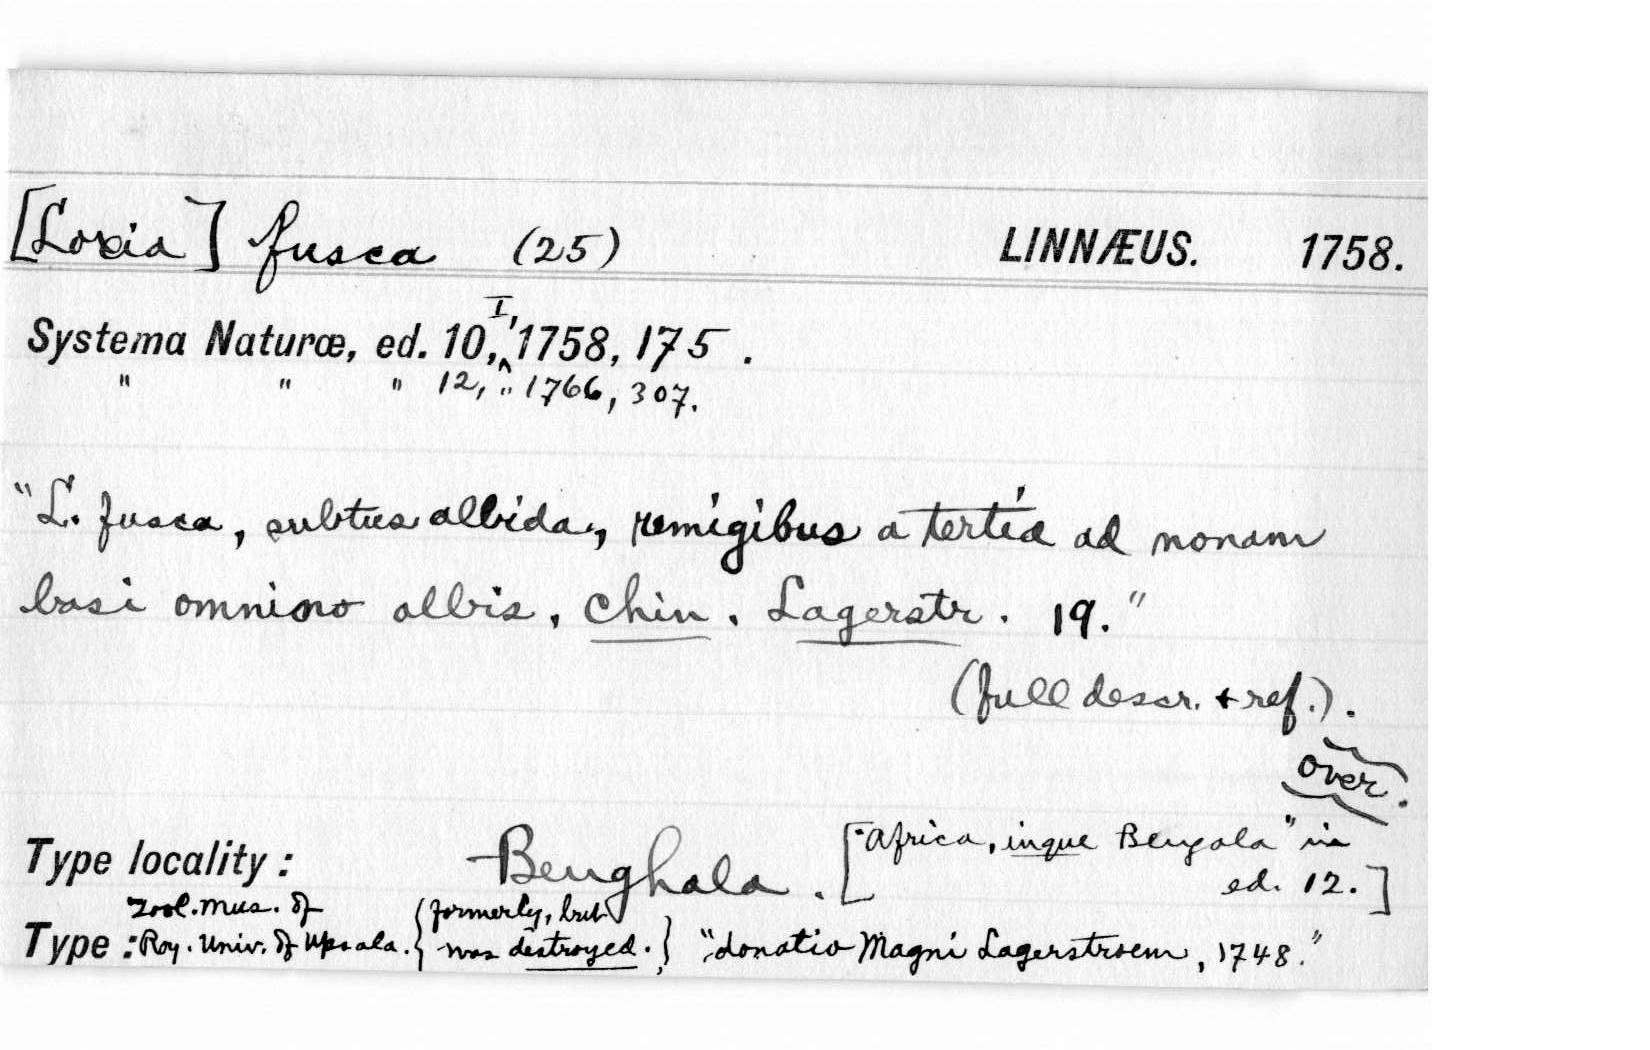 [Loxia] fusca (25) LINNÆUS. 1758.
Systema Naturæ, ed. 10, I, 1758, 175.
" " " 12, " 1766, 307.
"L. fusca, subtus albida, remigibus a tertia ad nonam
basi omnino albis. Chin. Lagerstr. 19."
(full descr. + ref.).
over.
Type locality: Benghala. ["Africa, inque Bengala" in
ed. 12.]
Type: Zool. Mus. of
Roy. Univ. of Upsala. {formerly, but
was destroyed.} "donatio Magni Lagerstroem, 1748."